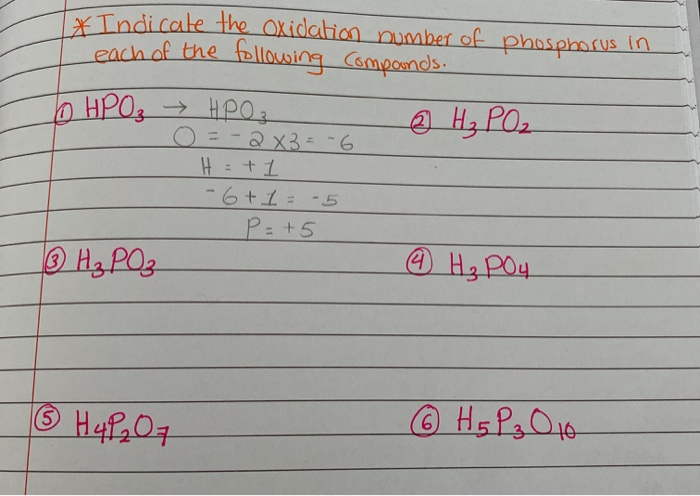 * Indicate the oxidation number of phosphorus in
each of the following compounds.
① HPO₃ → HPO₃
O = -2 x3 = -6
H = +1
-6+1 = -5
P = +5
② H₃PO₂
③ H₃PO₃
④ H₃PO₄
⑤ H₄P₂O₇
⑥ H₅P₃O₁₀